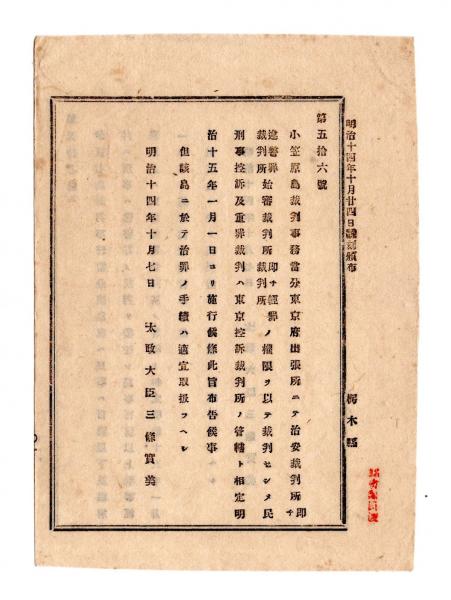 明治十四年十月廿四日飜刻頒布 栃木縣
第五拾六號
小笠原島裁判事務當分東京府出張所ニテ治安裁判所即チ
違警罪裁判所始審裁判所即チ輕罪裁判所ノ權限ヲ以テ裁判セシメ民
刑事控訴及重罪裁判ハ東京控訴裁判所ノ管轄ト相定明
治十五年一月一日ヨリ施行候條此旨布告候事
但該島ニ於テ治罪ノ手續ハ適宜取扱フヘシ
明治十四年十月七日 太政大臣三條實美